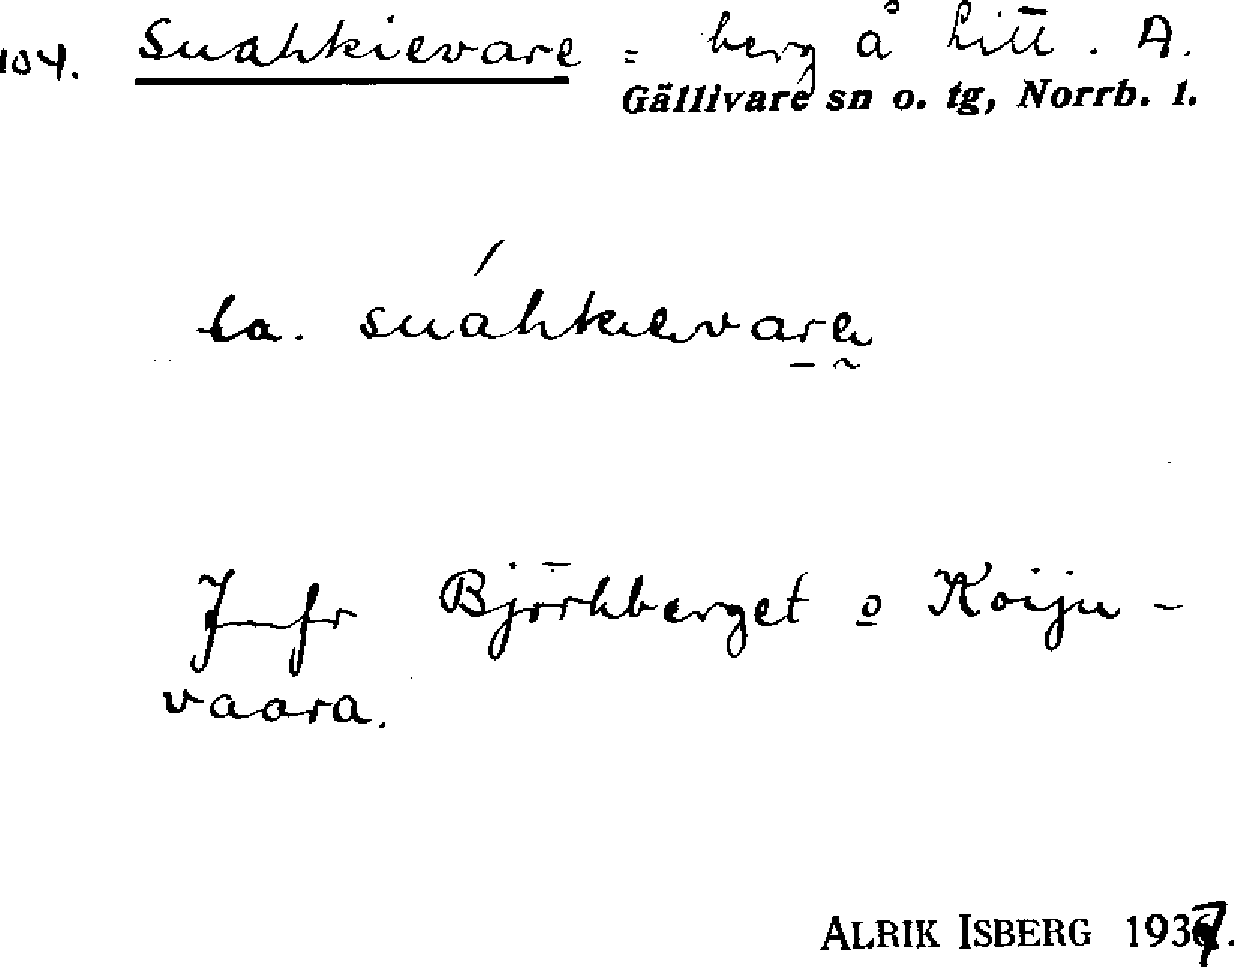 104. Suahkievare = berg å Litt. A.
Gällivare sn o. tg, Norrb. l.
la. suáhkievare
Jmfr Björkberget o Koiju-
vaara.
ALRIK ISBERG 1937.